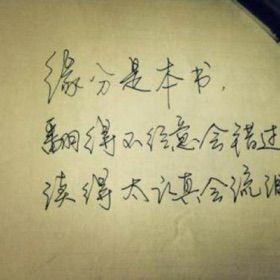 缘分是本书，
翻得不经意会错过
读得太认真会流泪